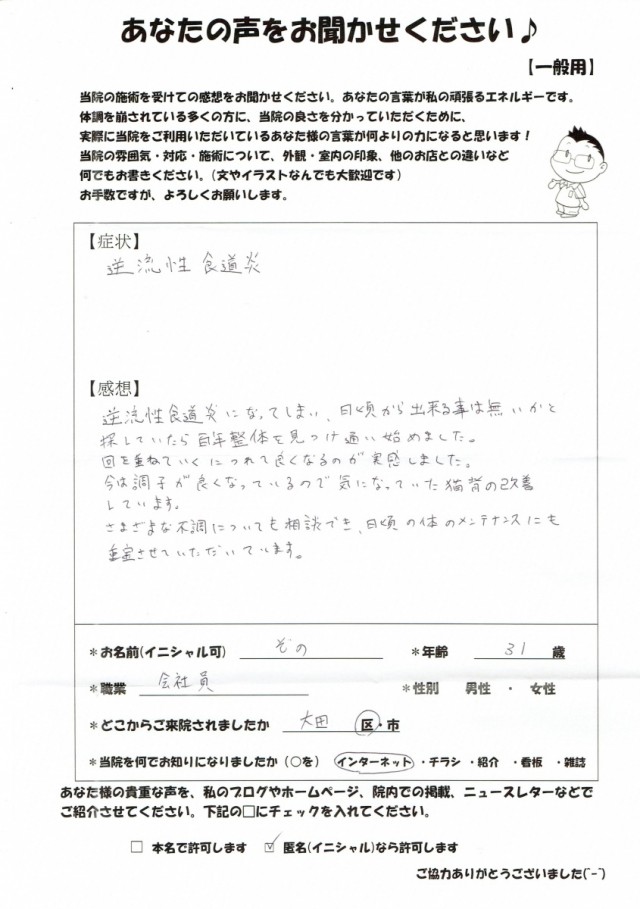 あなたの声をお聞かせください♪
【一般用】
当院の施術を受けての感想をお聞かせください。あなたの言葉が私の頑張るエネルギーです。
体調を崩されている多くの方に、当院の良さを分かっていただくために、
実際に当院をご利用いただいているあなた様の言葉が何よりの力になると思います!
当院の雰囲気・対応・施術について、外観・室内の印象、他のお店との違いなど
何でもお書きください。(文やイラストなんでも大歓迎です)
お手数ですが、よろしくお願いします。
【症状】
逆流性食道炎
【感想】
逆流性食道炎になってしまい、日頃から出来る事は無いかと
探していたら百年整体を見つけ通い始めました。
回を重ねていくにつれて良くなるのが実感しました。
今は調子が良くなっているので気になっていた猫背の改善
しています。
さまざまな不調についても相談でき、日頃の体のメンテナンスにも
重宝させていただいています。
*お名前(イニシャル可) ぞの *年齢 31 歳
*職業 会社員 *性別 男性 ・ 女性
*どこからご来院されましたか 大田 区・市
*当院を何でお知りになりましたか(○を) インターネット ・チラシ ・紹介 ・看板 ・雑誌
あなた様の貴重な声を、私のブログやホームページ、院内での掲載、ニュースレターなどで
ご紹介させてください。下記の□にチェックを入れてください。
□ 本名で許可します ☑ 匿名(イニシャル)なら許可します
ご協力ありがとうございました(^-^)